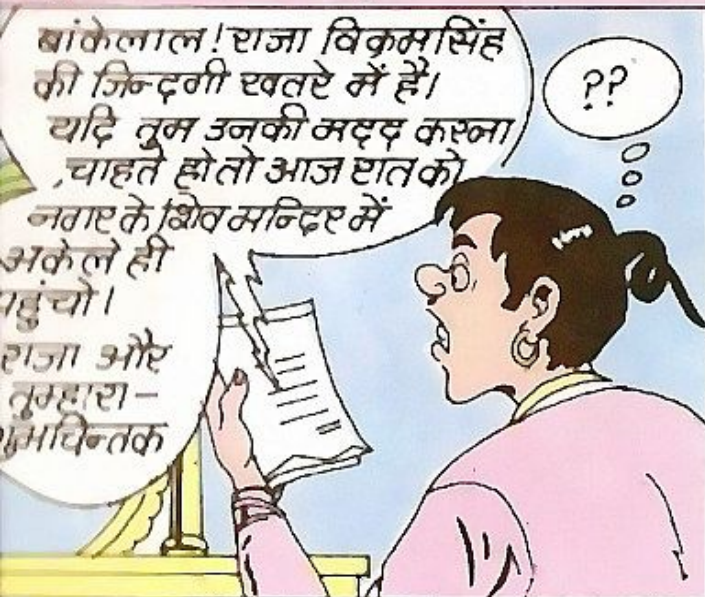 बांकेलाल! राजा विक्रमसिंह
की जिन्दगी खतरे में है।
यदि तुम उनकी मदद करना
चाहते हो तो आज रात को
नगर के शिव मन्दिर में
अकेले ही
पहुंचो।
राजा और
तुम्हारा-
शुभचिन्तक
??